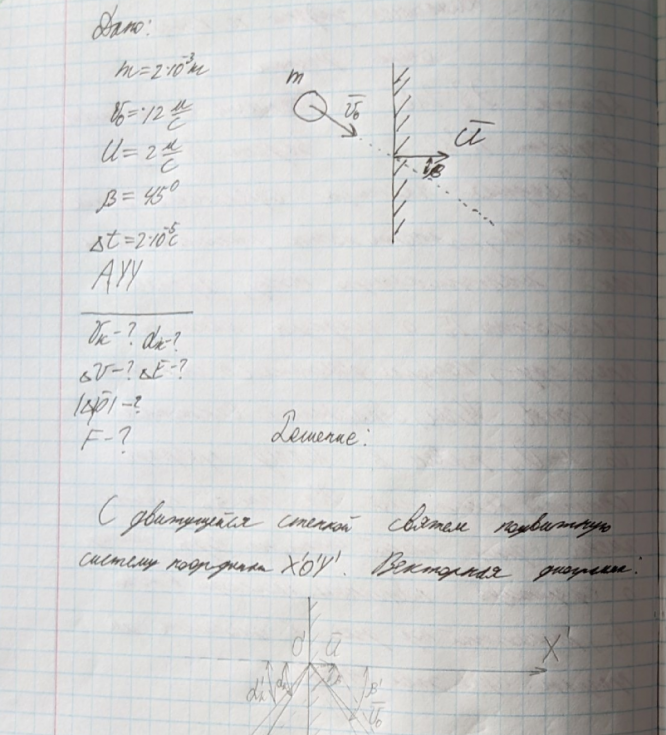 Дано:
m = 2·10⁻³кг
m
v̄₀
v₀ = 12 м/с
Ū
U = 2 м/с
β
β = 45°
Δt = 2·10⁻⁵с
АУУ
vк - ? αк - ?
Δv - ? ΔE - ?
|Δp̄| - ?
F - ?
Решение:
С движущейся стенкой свяжем подвижную
систему координат X'O'Y'. Векторная диаграмма:
O' Ū X'
β'
v̄₀